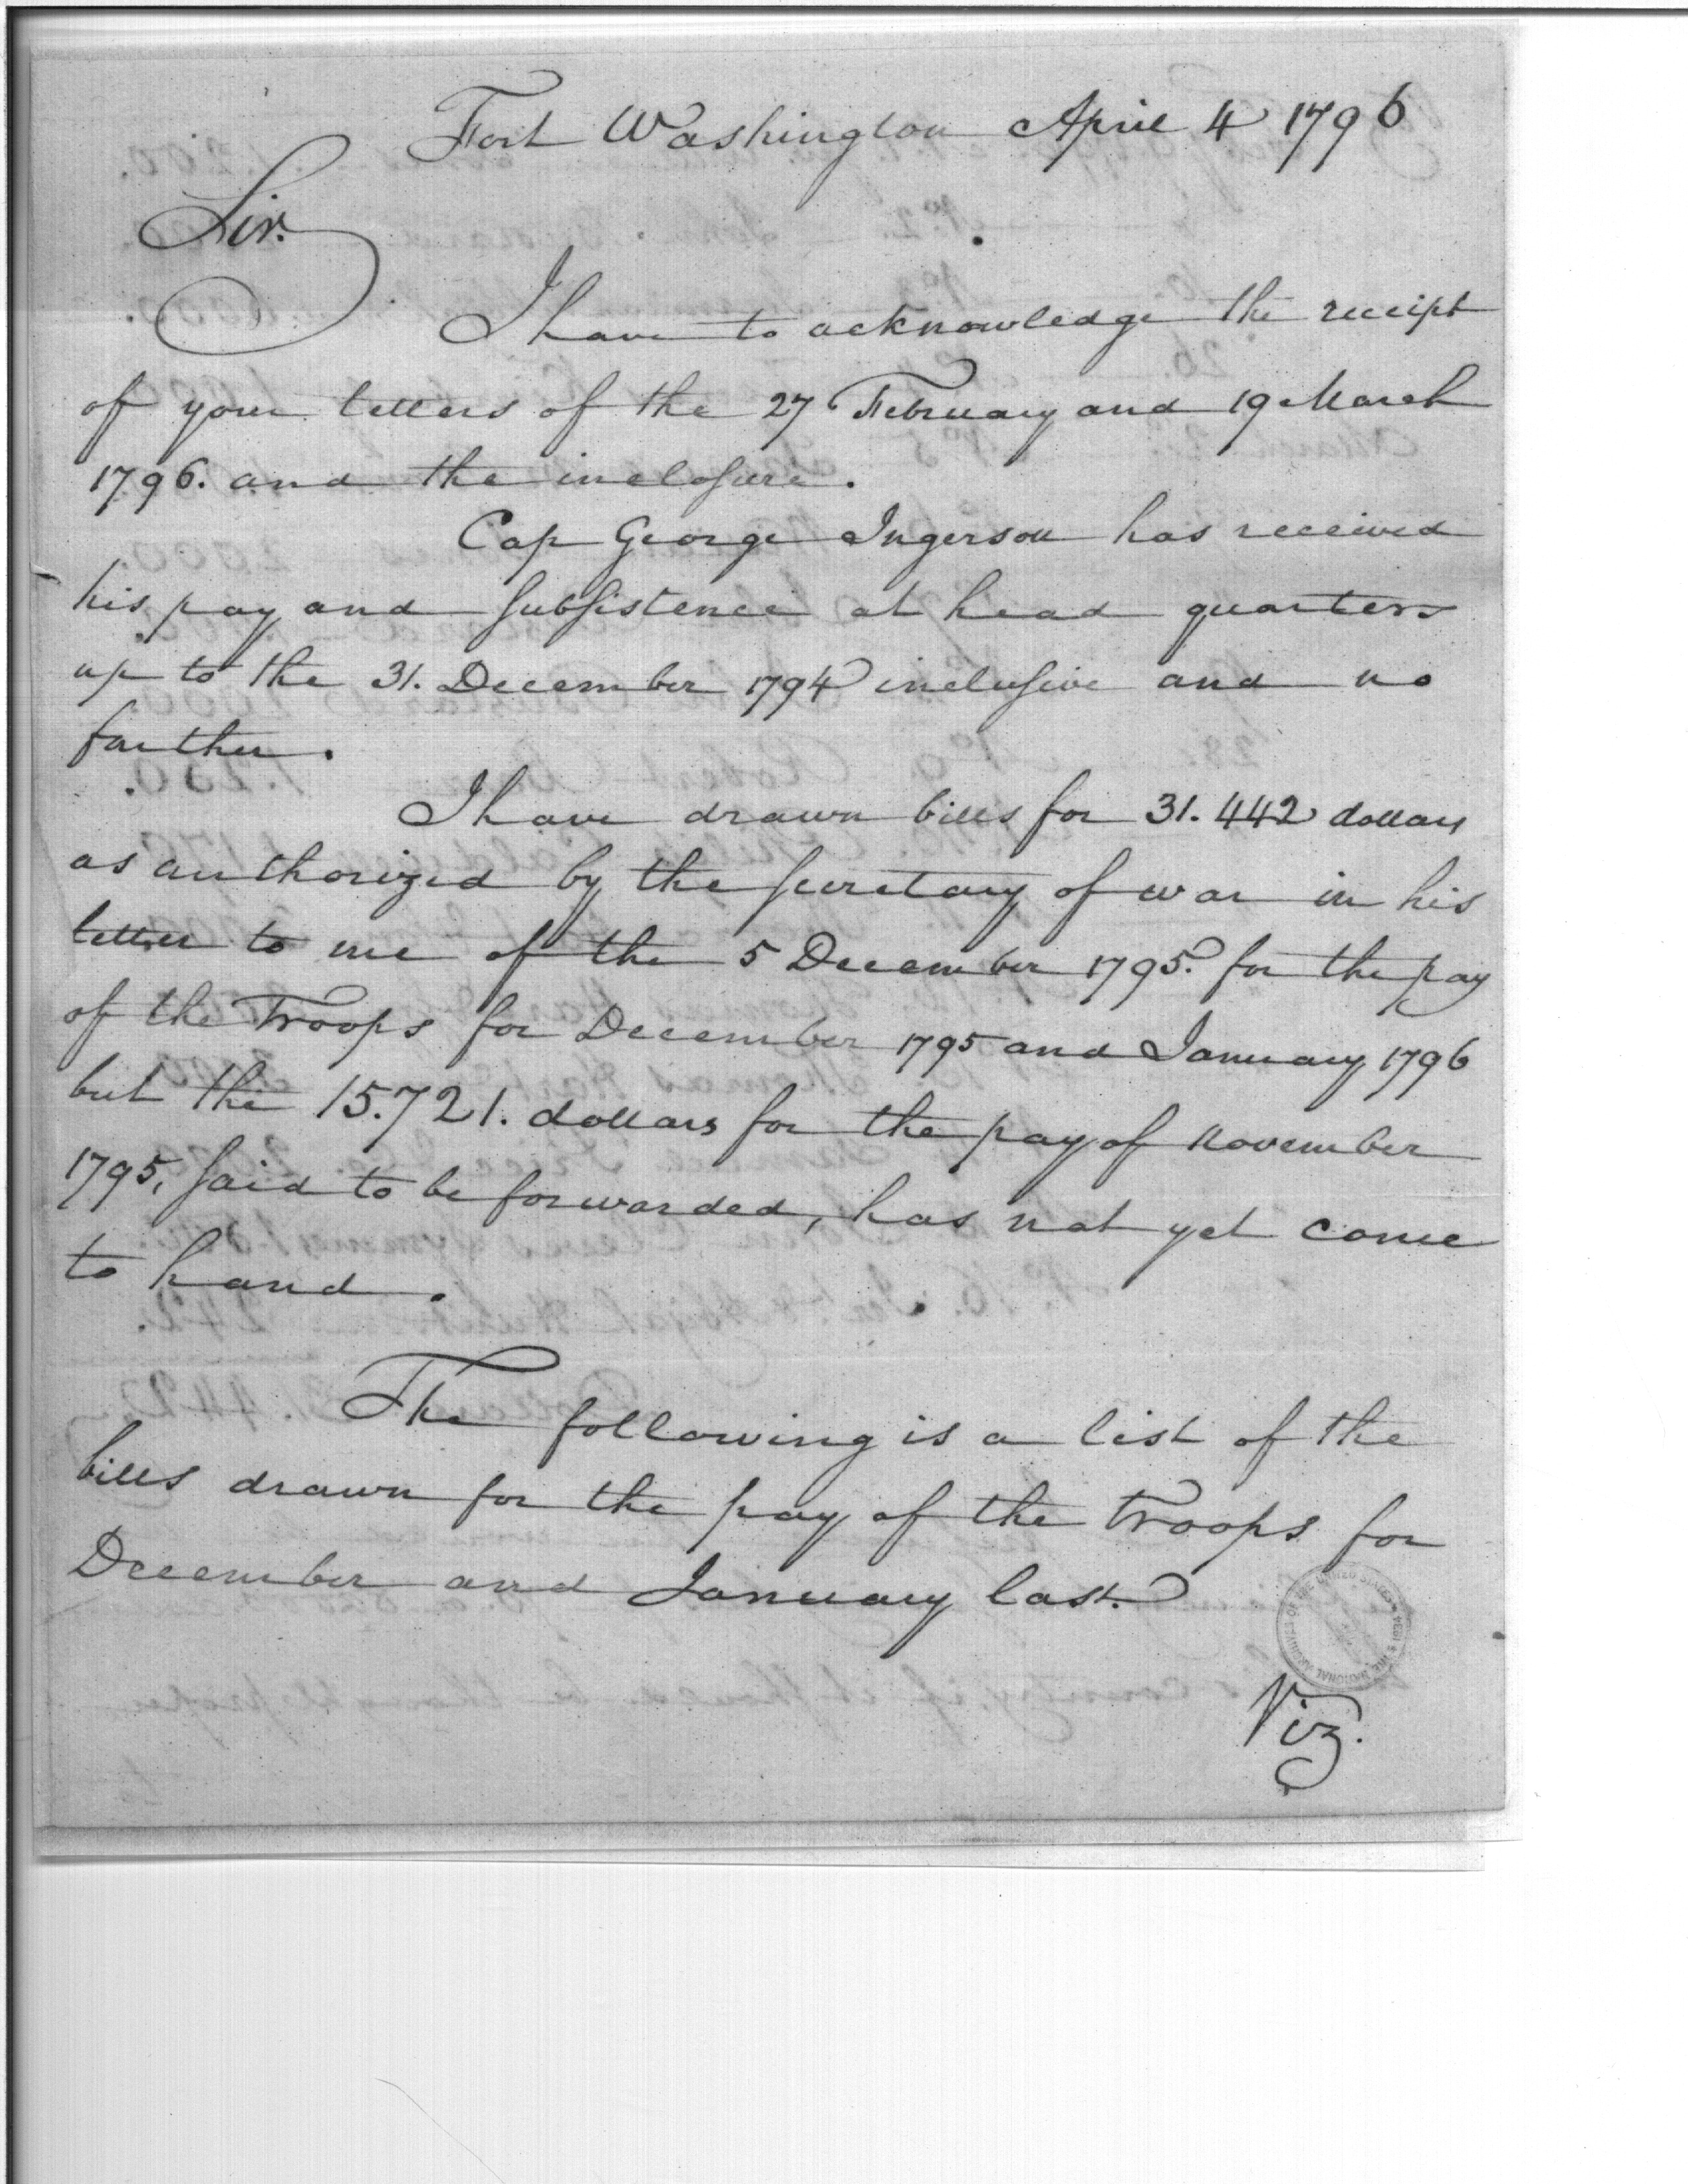 Fort Washington April 4 1796
Sir.
I have to acknowledge the receipt
of your letters of the 27 February and 19 March
1796. and the inclosure.
Cap George Ingersoll has received
his pay and subsistence at head quarters
up to the 31. December 1794 inclusive and no
farther.
I have drawn bills for 31.442 dollars
as authorized by the secretary of war in his
letter to me of the 5 December 1795. for the pay
of the Troops for December 1795 and January 1796
but the 15.721. dollars for the pay of November
1795, said to be forwarded, has not yet come
to hand.
The following is a list of the
bills drawn for the pay of the troops for
December and January last.
Viz.